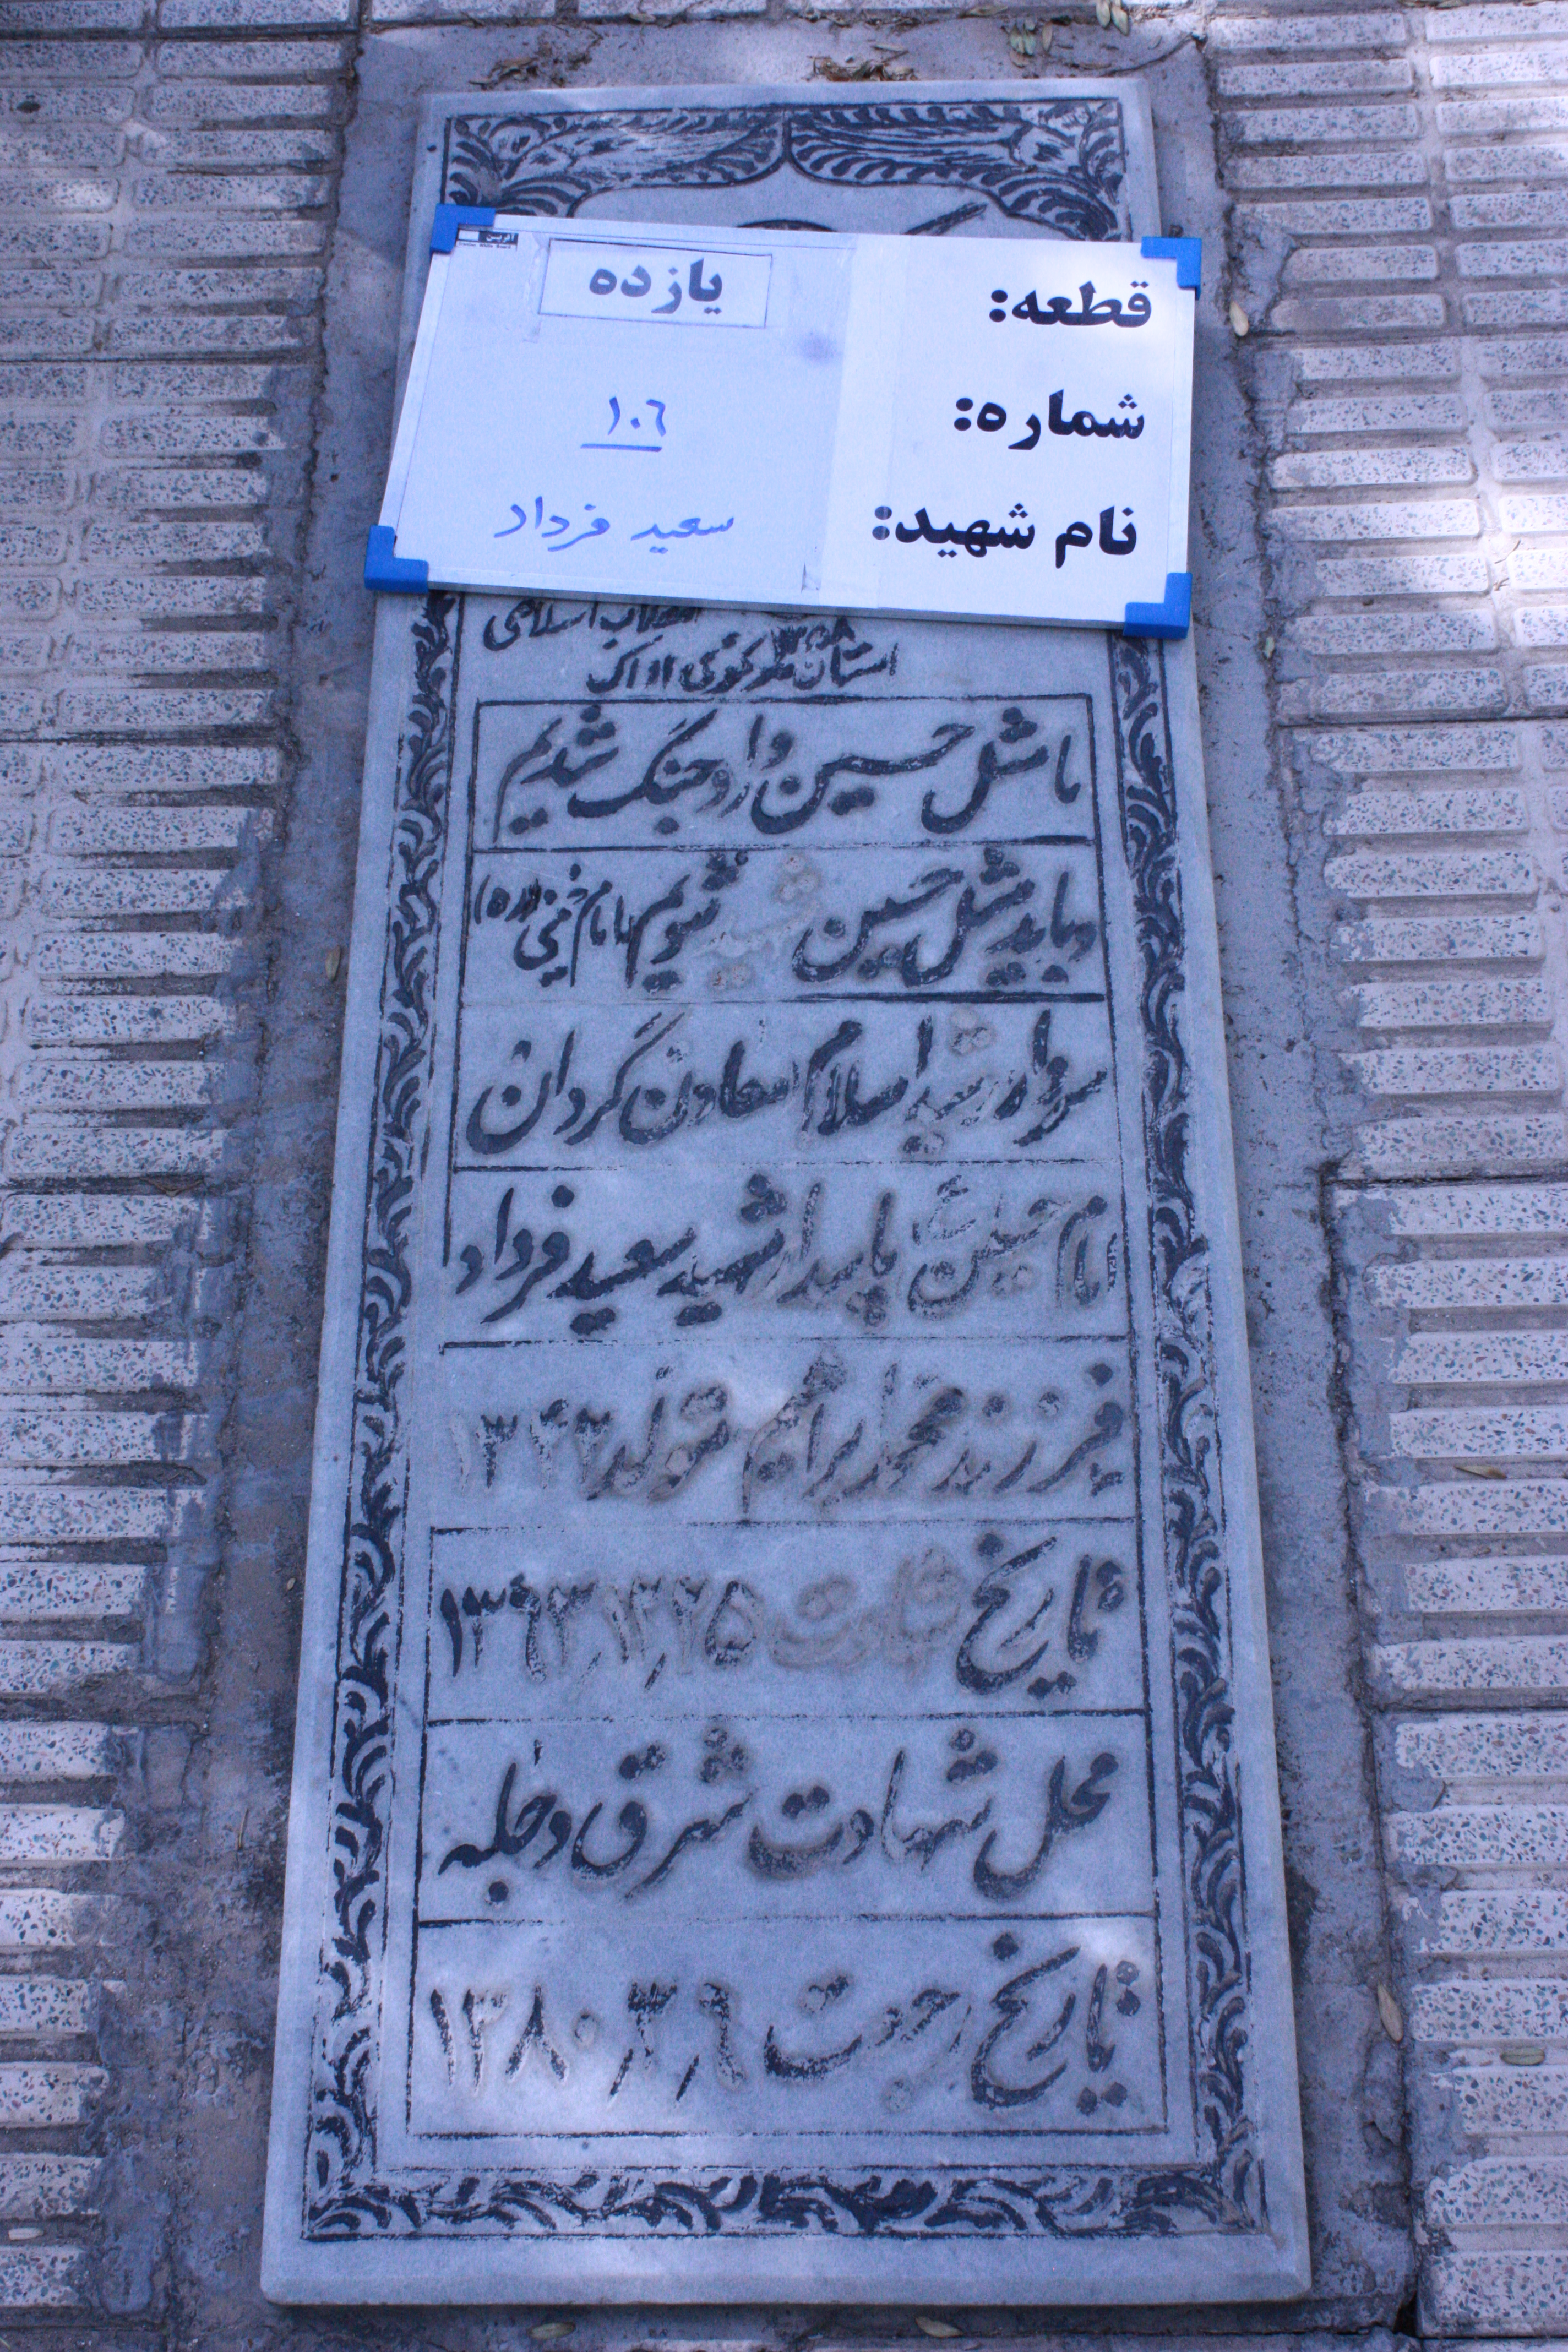 قطعه: یازده
شماره: ۱۰۶
نام شهید: سعید فرداد
انقلاب اسلامی
استان مرکزی اراک
ما مثل حسین وارد جنگ شدیم
و باید مثل حسین شهید شویم امام خمینی (ره)
سردار رشید اسلام معاون گردان
امام حسین (ع) پاسدار شهید سعید فرداد
فرزند محمد ابراهیم تولد ۱۳۴۲
تاریخ شهادت ۱۳۶۳٫۱۲٫۲۵
محل شهادت شرق دجله
تاریخ رجعت ۱۳۸۰٫۳٫۹